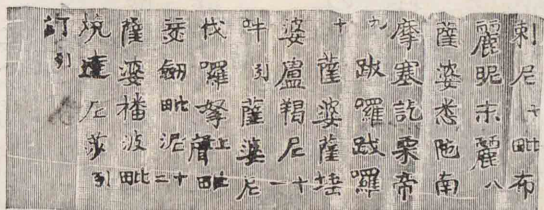 刺尼七毗布
麗昵末麗八
薩婆悉陁南
摩塞訖栗帝
九跋囉跋囉
十薩婆薩埵
婆盧羯尼十一
吽引薩婆尼
伐囉拏上聲毗
瑟劒毗泥十二
薩婆播波毗
燒達尼莎引
訶引